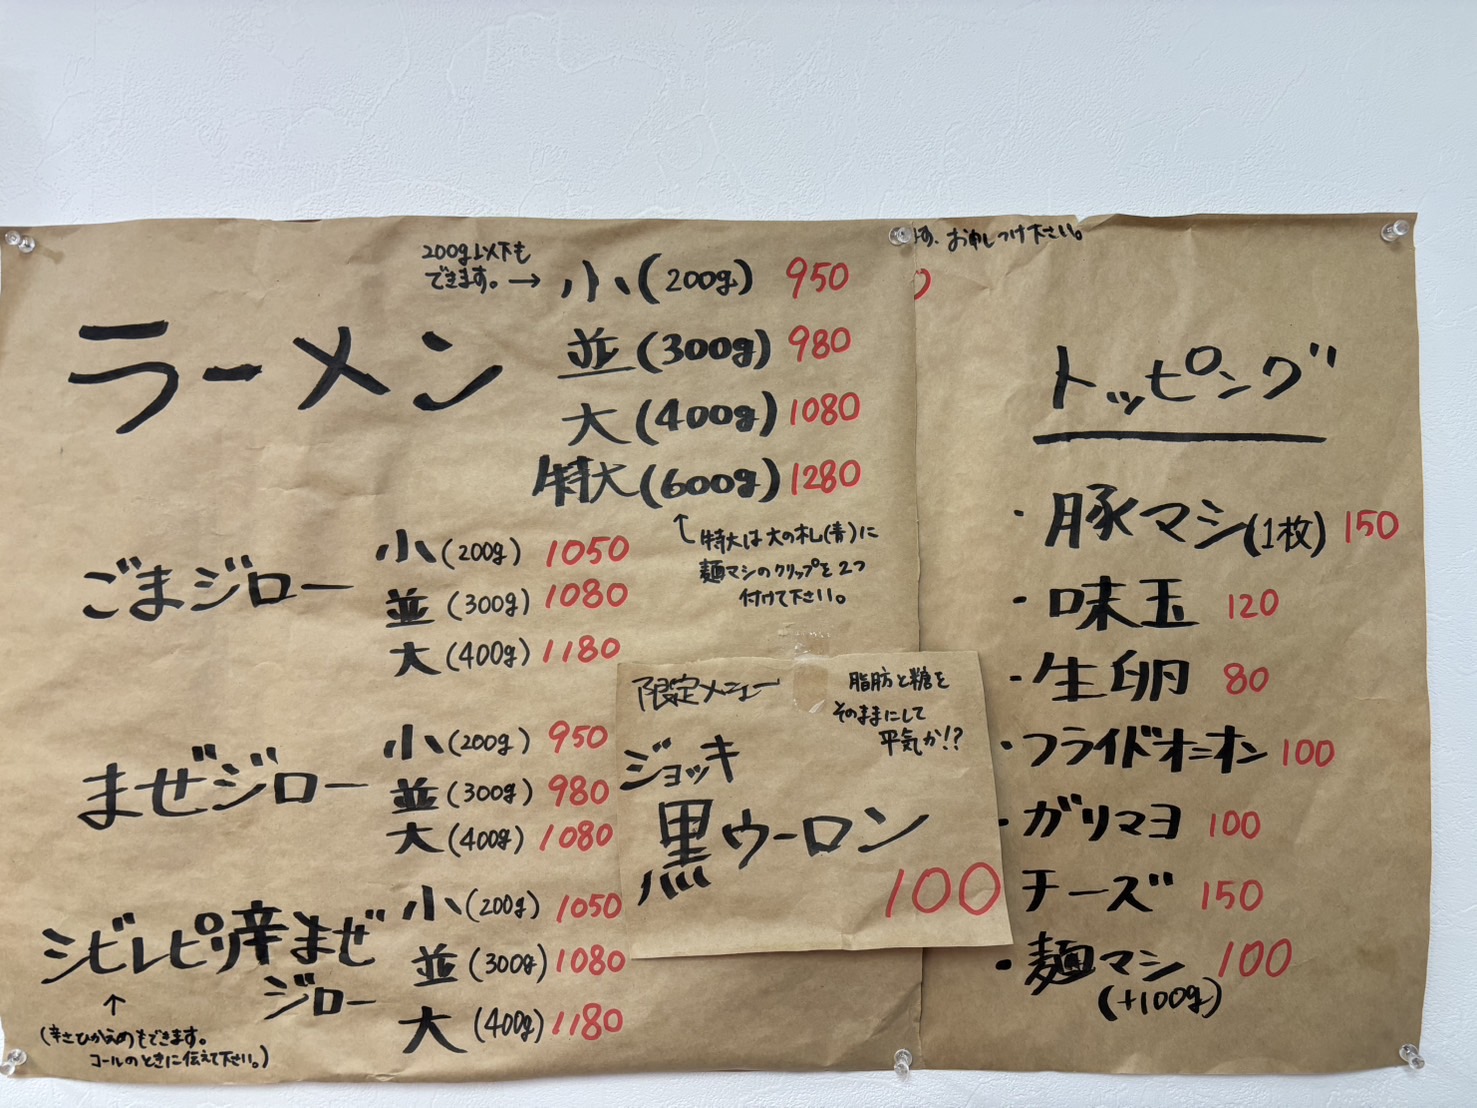 200g以下も
できます。→ 小(200g) 950
ラーメン
並(300g) 980
大(400g) 1080
特大(600g) 1280
↑特大は大の札(青)に
麺マシのクリップを2つ
付けて下さい。
ごまジロー
小(200g) 1050
並(300g) 1080
大(400g) 1180
まぜジロー
小(200g) 950
並(300g) 980
大(400g) 1080
シビレピリ辛まぜ
ジロー
小(200g) 1050
並(300g) 1080
大(400g) 1180
↑
(辛さひかえめもできます。
コールのときに伝えて下さい。)
限定メニュー
脂肪と糖を
そのままにして
平気か!?
ジョッキ
黒ウーロン
100
お申しつけ下さい。
トッピング
・豚マシ(1枚) 150
・味玉 120
・生卵 80
・フライドオニオン 100
・ガリマヨ 100
・チーズ 150
・麺マシ 100
(+100g)